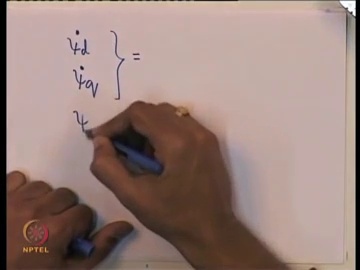 ψ̇d } =
ψ̇q
ψ
NPTEL